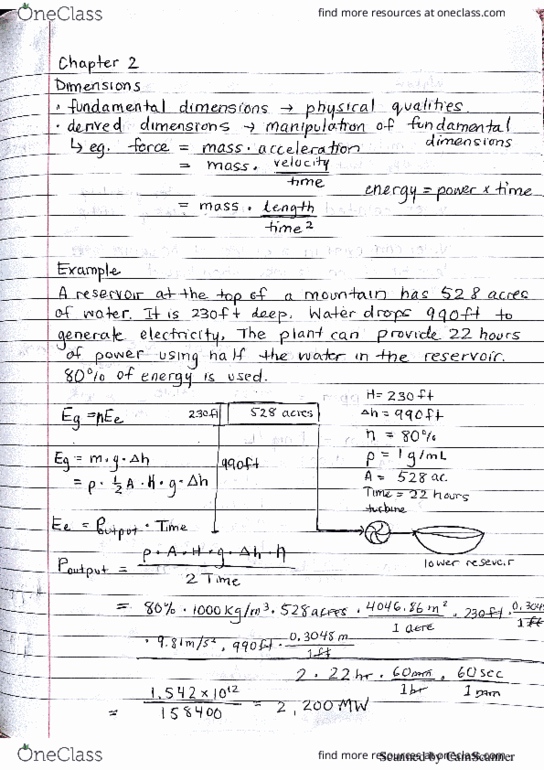 OneClass
find more resources at oneclass.com
Chapter 2
Dimensions
• fundamental dimensions → physical qualities
• derived dimensions → manipulation of fundamental dimensions
↳ eg. force = mass · acceleration
= mass · velocity / time
energy = power × time
= mass · length / time²
Example
A reservoir at the top of a mountain has 528 acres
of water. It is 230ft deep. Water drops 990ft to
generate electricity. The plant can provide 22 hours
of power using half the water in the reservoir.
80% of energy is used.
H = 230 ft
Δh = 990ft
η = 80%
ρ = 1 g/mL
A = 528 ac.
Time = 22 hours
Eg = ηEe
230ft
528 acres
990ft
Eg = m·g·Δh
= ρ · ½A · H · g · Δh
turbine
lower reseveir
Ee = Poutput · Time
Poutput = ρ · A · H · g · Δh · η / 2 Time
= 80% · 1000 kg/m³ · 528 acres · 4046.86 m² / 1 acre · 230ft · 0.3048 / 1 ft
· 9.81 m/s² · 990ft · 0.3048 m / 1 ft
2 · 22 hr · 60 min / 1 hr · 60 sec / 1 min
= 1.542 × 10¹² / 158400 = 2,200 MW
OneClass
find more resources at oneclass.com
Scanned by CamScanner